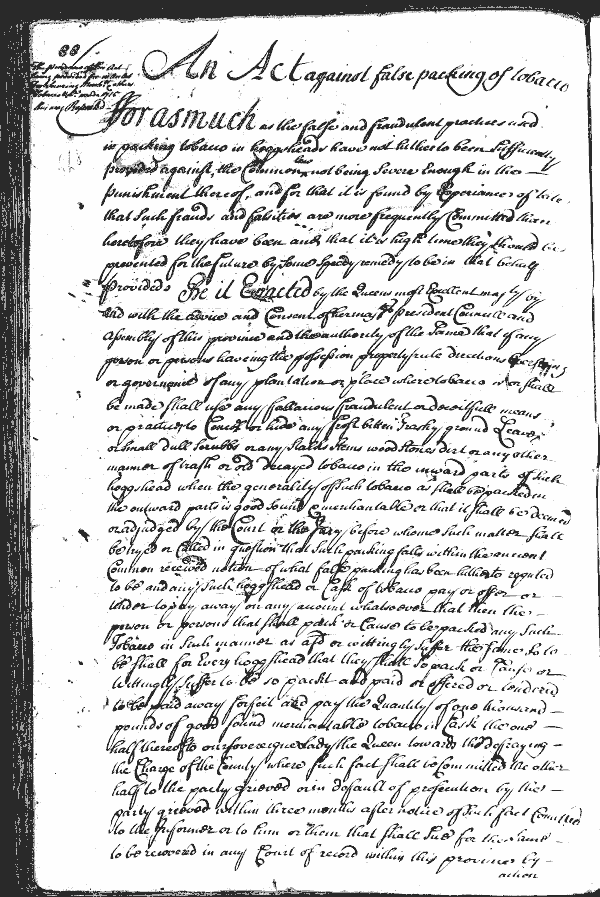 88
An Act against false packing of tobacco
Forasmuch as the false and fraudulent practices used
in packing tobacco in hoggsheads have not hitherto been sufficiently
provided against, the Common Law not being Severe Enough in the
punishment thereof, and for that it is found by Experience of late
that Such frauds and falsities are more frequently Committed then
heretofore they have been and that it is high time they should be
prevented for the future by Some Speedy remedy to be in that behalf
provided Be it Enacted by the Queens most Excellent majty by
and with the advice and Consent of her majtys president Councill and
Assembly of this province and the authority of the Same that if any
person or persons haveing the possession property rule directions
or government of any plantation or place where tobacco is or shall
be made shall use any fallacious fraudulent or deceitfull means
or practice to Conceal or hide any frost bitten Trashy ground Leaves
or small dull Scrubbs or any Stalks Stems wood Stones dirt or any other
manner of trash or old decayed tobacco in the inward parts of such
hoggshead when the generality of Such tobacco as shall be packed in
the outward parts is good sound & merchantable or that it shall be deemed
or adjudged by the Court or the Jury before whome Such matter shall
be tryed or Called in question that Such packing falls within the ancient
Common received notion of what false packing has been hitherto reputed
to be and any such hoggshead or Cask of tobacco pay or offer or
tender to pay away on any account whatsoever that then the
person or persons that shall pack or Cause to be packed any Such
Tobacco in Such manner as afd or wittingly Suffer the same so to
be shall for every hoggshead that they shall so pack or Cause or
Wittingly Suffer to be so packt and paid or offered or tendered
to be paid away forfeit and pay the Quantity of one thousand
pounds of good sound merchantable tobacco in Cask the one
half thereof to our sovereigne Lady the Queen towards the defraying
the Charge of the County where such fact shall be Committed the other
half to the party grieved or in default of prosecution by the
party grieved within three months after notice of Such fact Committed
to the Informer or to him or them that shall Sue for the Same
to be recovered in any Court of record within this province by
action